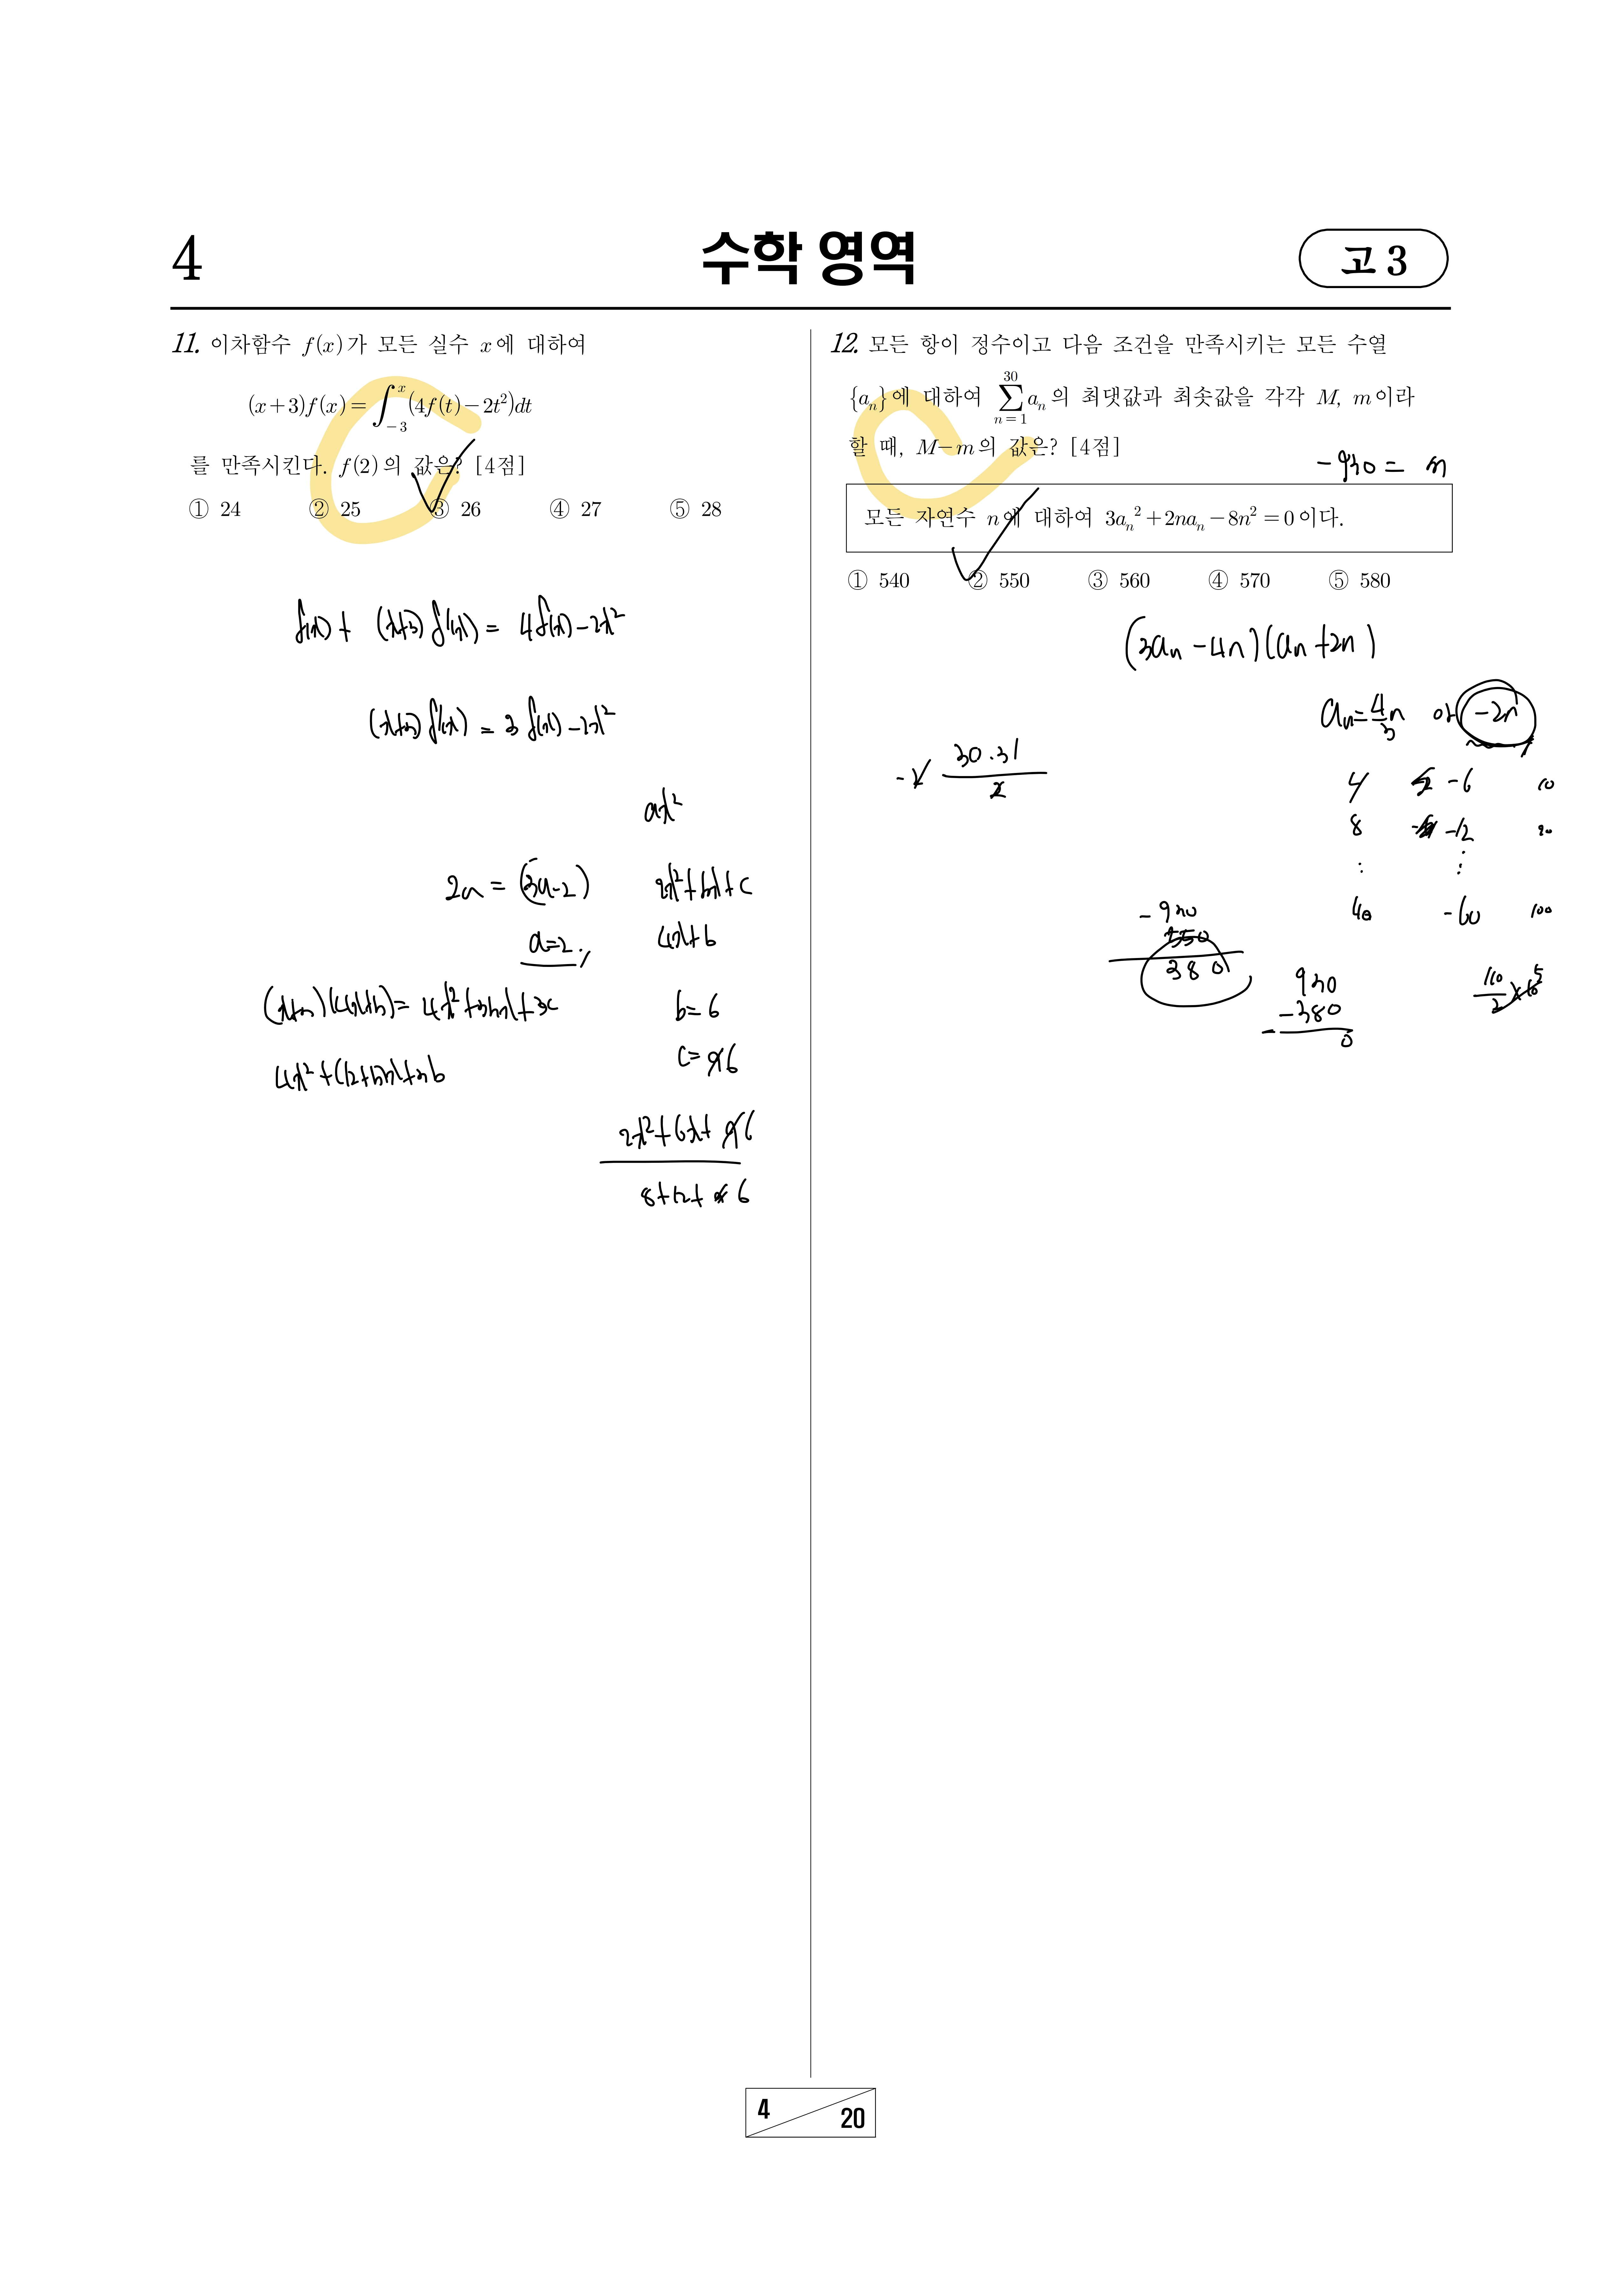 4
수학 영역
고 3
11. 이차함수 f(x)가 모든 실수 x에 대하여
(x+3)f(x) = ∫_{-3}^{x} (4f(t) - 2t²)dt
를 만족시킨다. f(2)의 값은? [4점]
① 24 ② 25 ③ 26 ④ 27 ⑤ 28
f(x) + (x+3)f'(x) = 4f(x) - 2x²
(x+3)f'(x) = 3f(x) - 2x²
ax²
2a = (3a-2)
2x²+bx+c
a=2
4x+b
(x+3)(4x+b) = 4x²+3bx+3c
b=6
c=6
4x²+(12+b)x+3b
2x²+6x+6
8+12+6
12. 모든 항이 정수이고 다음 조건을 만족시키는 모든 수열
{aₙ}에 대하여 ∑_{n=1}^{30} aₙ의 최댓값과 최솟값을 각각 M, m이라
할 때, M-m의 값은? [4점]
-930 = m
모든 자연수 n에 대하여 3aₙ²+2naₙ-8n²=0이다.
① 540 ② 550 ③ 560 ④ 570 ⑤ 580
(3aₙ-4n)(aₙ+2n)
aₙ=4/3 n or -2n
-2 30·31/2
4 -6 10
8 -12 20
⋮ ⋮
40 -60 100
-930
550
380
930
-380
0
110/2 ×10 5
4
20